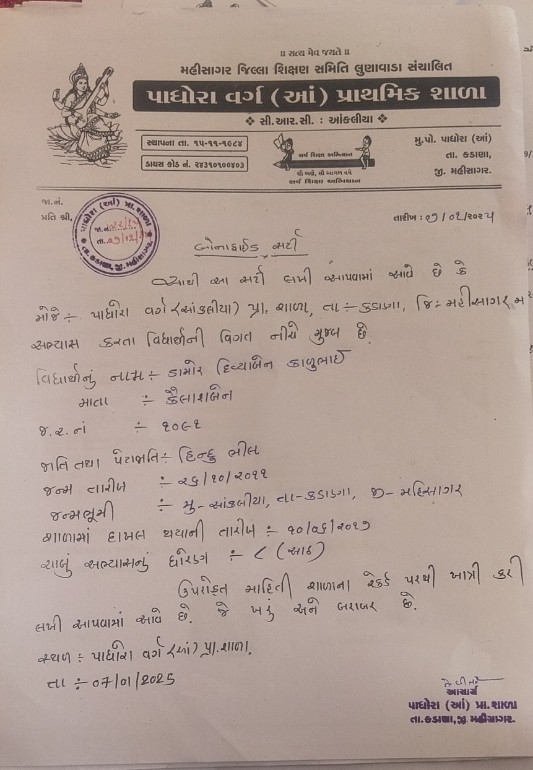 ॥ સત્ય મેવ જયતે ॥
મહીસાગર જિલ્લા શિક્ષણ સમિતિ લુણાવાડા સંચાલિત
પાધોરા વર્ગ (આં) પ્રાથમિક શાળા
❖ સી.આર.સી. : આંકલીયા ❖
સ્થાપના તા. ૧૫-૧૧-૧૯૮૪
ડાયસ કોડ નં. ૨૪૩૧૦૧૦૦૪૦૩
સર્વ શિક્ષા અભિયાન
સૌ ભણે, સૌ આગળ વધે
સર્વ શિક્ષા અભિયાન
મુ.પો. પાધોરા (આં)
તા. કડાણા,
જી. મહીસાગર.
જા.નં.
પ્રતિ શ્રી,
પાધોરા (આં) પ્રા.શાળા
જા.નં.
તા.
તા.કડાણા,જી.મહીસાગર.
તારીખ : ૦૭/૦૧/૨૦૨૫
બોનાફાઈડ સર્ટી
આથી આ સર્ટી લખી આપવામાં આવે છે કે
મોજે ÷ પાધોરા વર્ગ (આંકલીયા) પ્રા. શાળા, તા ÷ કડાણા, જિ ÷ મહીસાગર માં
અભ્યાસ કરતા વિદ્યાર્થીની વિગત નીચે મુજબ છે.
વિદ્યાર્થીનું નામ ÷ ડામોર દિવ્યાબેન કાળુભાઈ
માતા ÷ કૈલાશબેન
જ.ર.નં ÷ ૧૦૯૧
જાતિ તથા પેટાજાતિ ÷ હિન્દુ ભીલ
જન્મ તારીખ ÷ ૨૬/૧૦/૨૦૧૧
જન્મભૂમી ÷ મુ-આંકલીયા, તા-કડાણા, જી-મહિસાગર
શાળામાં દાખલ થયાની તારીખ ÷ ૧૦/૦૬/૨૦૧૭
ચાલું અભ્યાસનું ધોરણ ÷ ૮ (આઠ)
ઉપરોક્ત માહિતી શાળાના રેકર્ડ પરથી ખાત્રી કરી
લખી આપવામાં આવે છે. જે ખરું અને બરાબર છે.
સ્થળ ÷ પાધોરા વર્ગ (આં) પ્રા.શાળા.
તા ÷ ૦7/01/2025
આચાર્ય
પાધોરા (આં) પ્રા.શાળા
તા.કડાણા,જી. મહીસાગર.